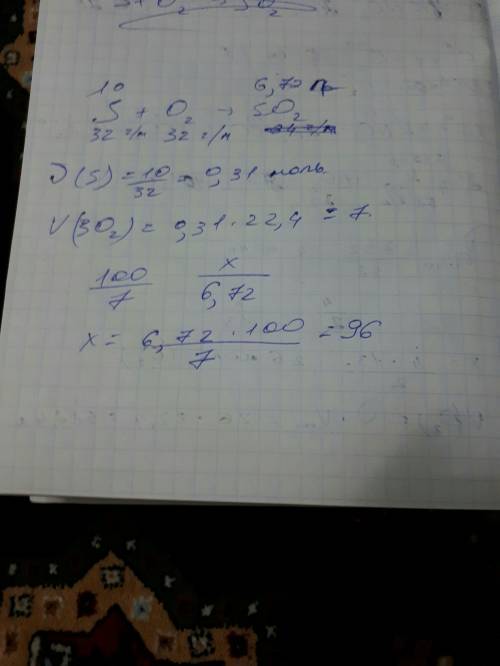 10 6,72 л
S + O₂ → SO₂
32 г/м 32 г/м
ν(S) = 10/32 = 0,31 моль
V(SO₂) = 0,31 · 22,4 = 7
100/7 x/6,72
x = 6,72 · 100/7 = 96